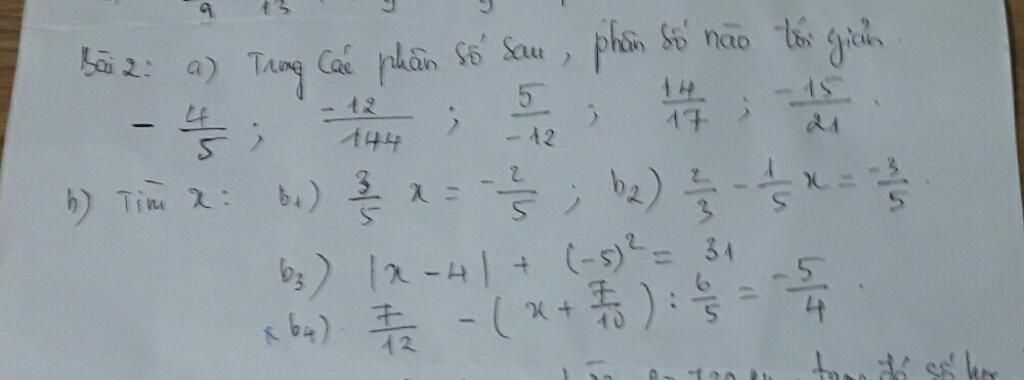 9 13 9 9
Bài 2: a) Trong các phân số sau, phân số nào tối giản.
- 4/5 ; -12/144 ; 5/-12 ; 14/17 ; -15/21 .
b) Tìm x : b1) 3/5 x = -2/5 ; b2) 2/3 - 1/5 x = -3/5 .
b3) |x - 4| + (-5)² = 31
b4) 7/12 - ( x + 7/10 ) : 6/5 = -5/4 .
trong đó số học